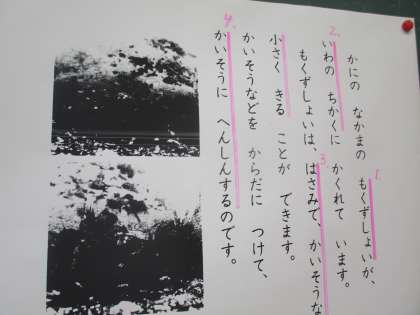 かにの なかまの もくずしょいが、
いわの ちかくに かくれて います。
もくずしょいは、はさみで、かいそうな
小さく きる ことが できます。
かいそうなどを からだに つけて、
かいそうに へんしんするのです。
1.
2.
3.
4.